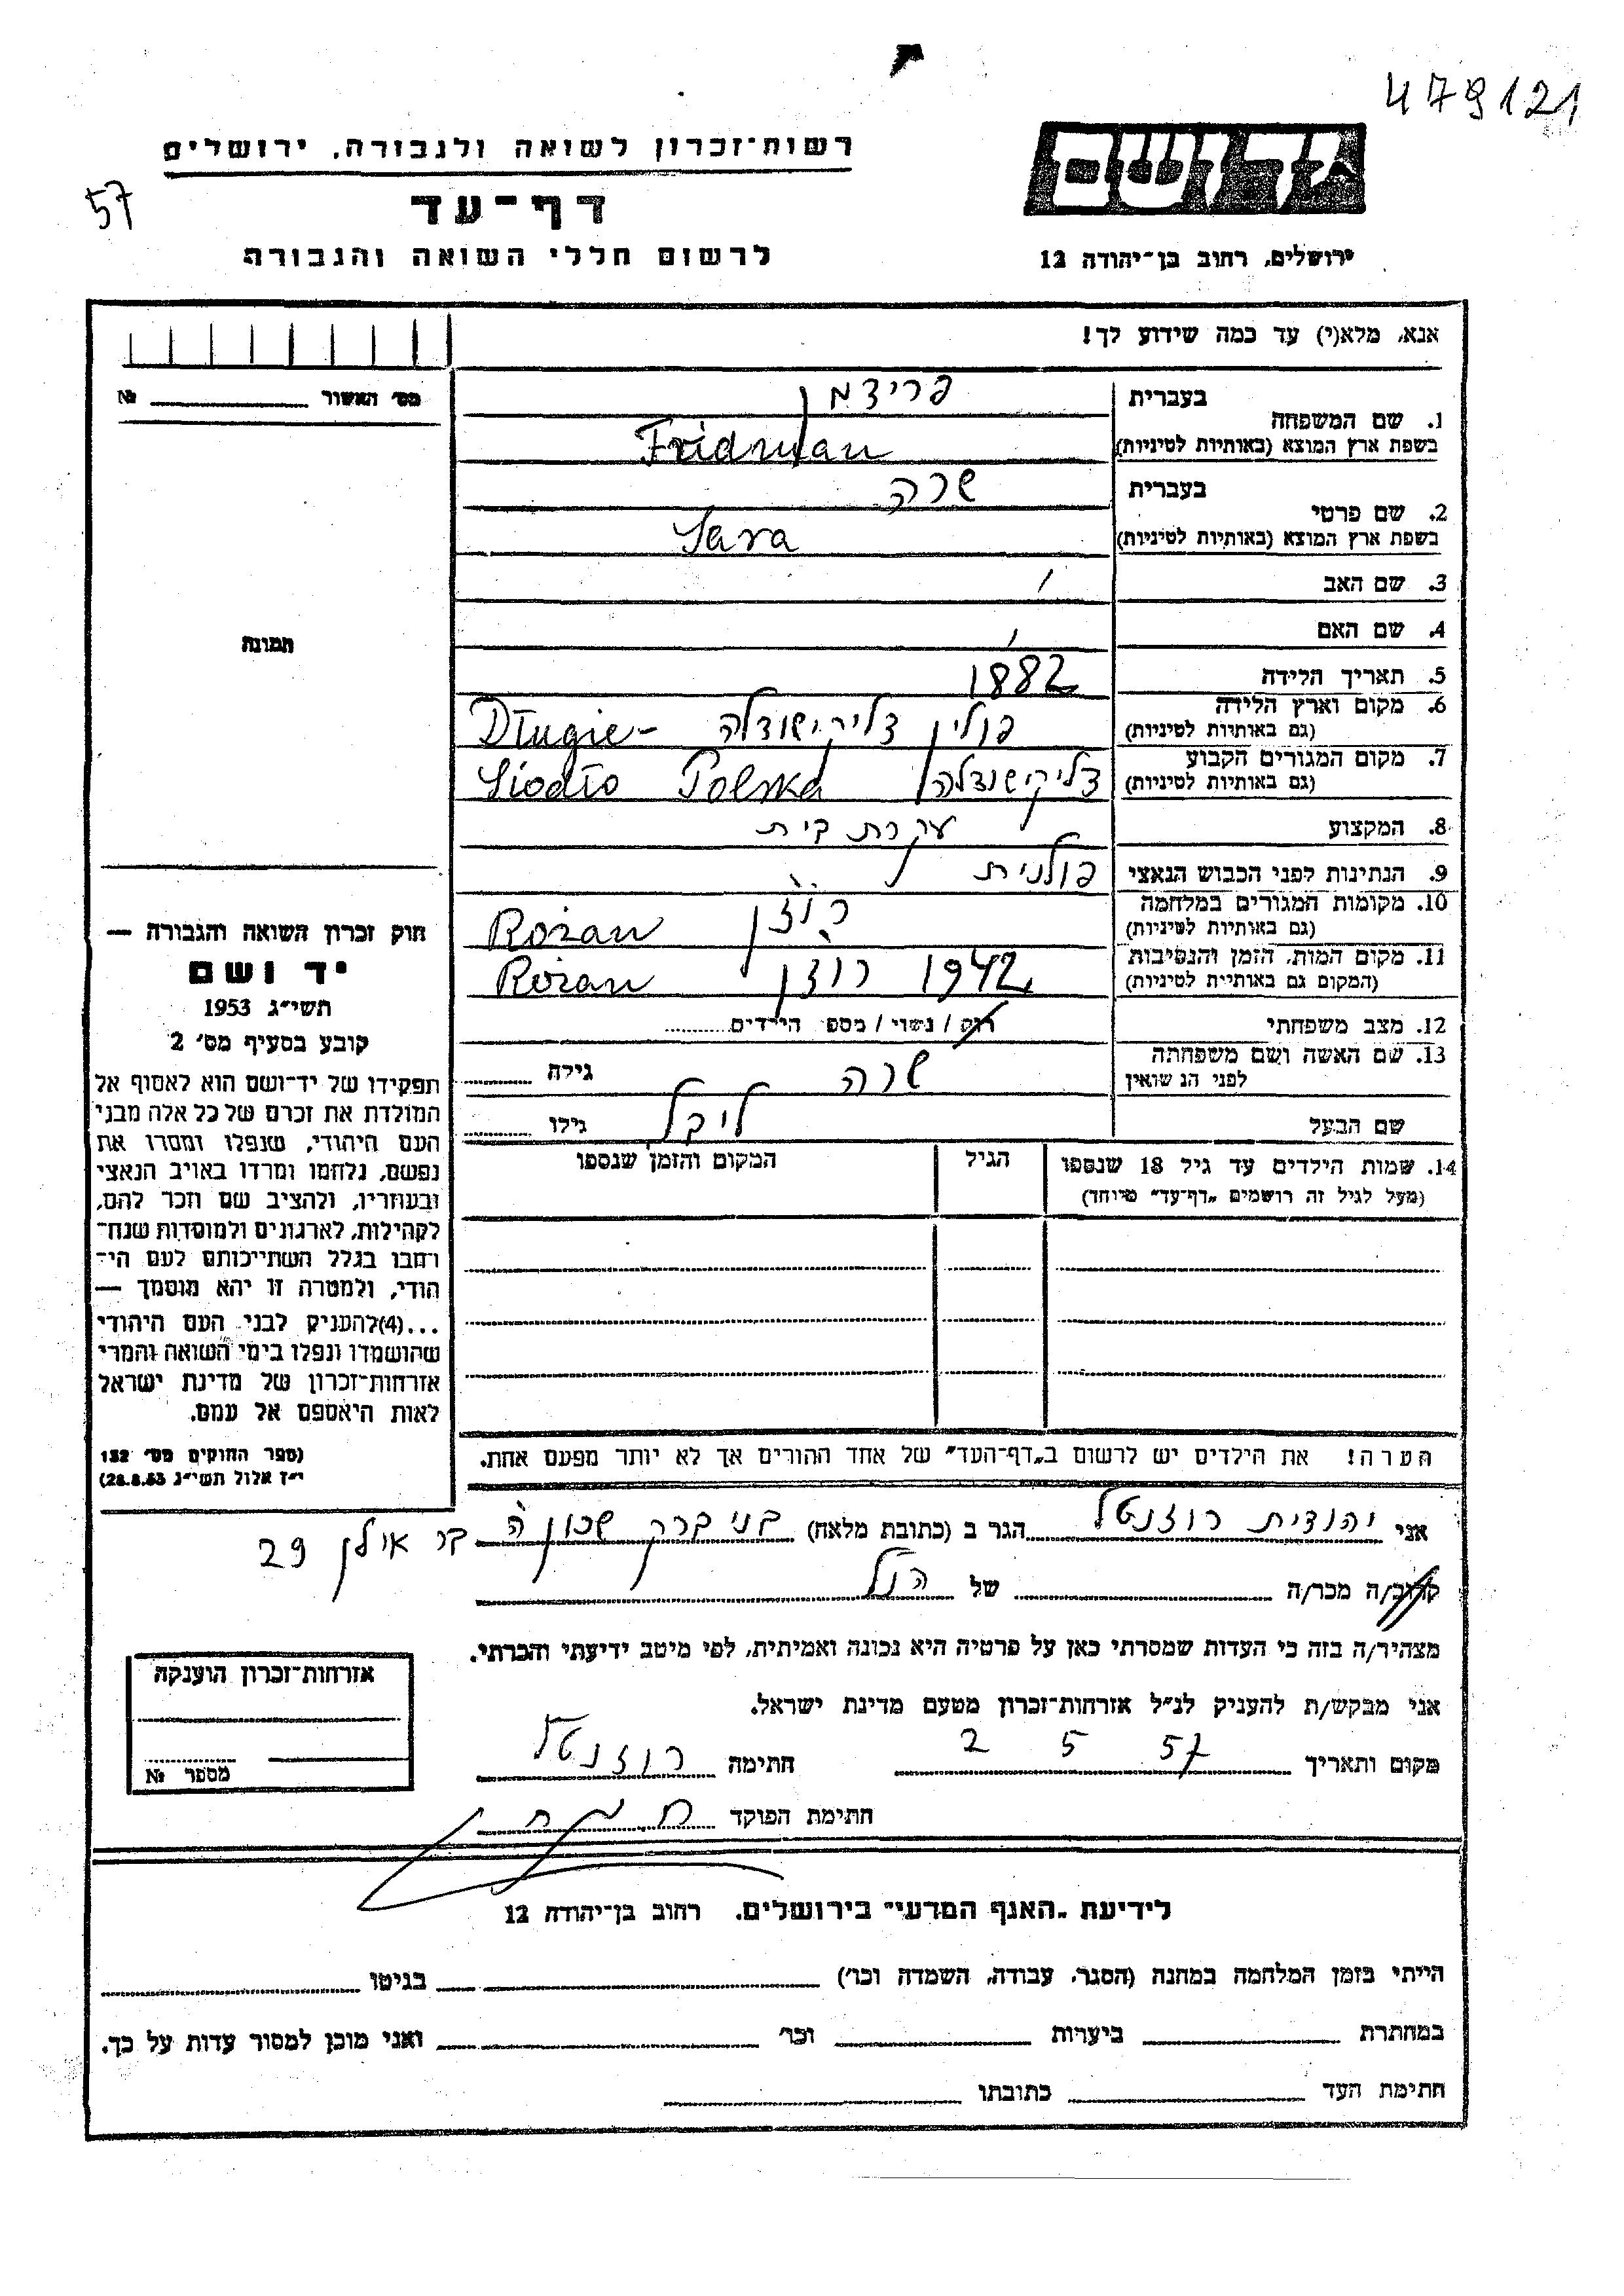 479121
רשות־זכרון לשואה ולגבורה, ירושלים
57
דף־עד
לרשום חללי השואה והגבורה
יד ושם
ירושלים, רחוב בן־יהודה 12
אנא, מלא(י) עד כמה שידוע לך!
מס׳ האשור №
1. שם המשפחה בעברית פרידמן
בשפת ארץ המוצא (באותיות לטיניות) Fridman
2. שם פרטי בעברית שרה
בשפת ארץ המוצא (באותיות לטיניות) Sara
3. שם האב
4. שם האם
תמונה
5. תאריך הלידה 1882
6. מקום וארץ הלידה (גם באותיות לטיניות) פולין Długie-
7. מקום המגורים הקבוע (גם באותיות לטיניות) Siodło Polska
8. המקצוע עקרת בית
9. הנתינות לפני הכבוש הנאצי פולנית
10. מקומות המגורים במלחמה (גם באותיות לטיניות) רוז'ן Rożan
11. מקום המות, הזמן והנסיבות (המקום גם באותיית לטיניות) 1942 רוז'ן Rożan
12. מצב משפחתי רוק / נשוי / מספ׳ הילדים
13. שם האשה ושם משפחתה לפני הנשואין שרה גילה
שם הבעל ליבל גילו
14. שמות הילדים עד גיל 18 שנספו הגיל המקום והזמן שנספו
(מעל לגיל זה רושמים „דף־עד״ מיוחד)
חוק זכרון השואה והגבורה —
יד ושם
תשי״ג 1953
קובע בסעיף מס׳ 2
תפקידו של יד־ושם הוא לאסוף אל
המולדת את זכרם של כל אלה מבני
העם היהודי, שנפלו ומסרו את
נפשם, נלחמו ומרדו באויב הנאצי
ובעוזריו, ולהציב שם וזכר להם,
לקהילות, לארגונים ולמוסדות שנח־
רבו בגלל השתייכותם לעם הי־
הודי, ולמטרה זו יהא מוסמך —
...(4)להעניק לבני העם היהודי
שהושמדו ונפלו בימי השואה והמרי
אזרחות־זכרון של מדינת ישראל
לאות היאספם אל עמם.
(ספר החוקים מס׳ 132
י״ז אלול תשי״ג 28.8.53)
הערה! את הילדים יש לרשום ב„דף־העד״ של אחד ההורים אך לא יותר מפעם אחת.
אני יהודית רוזנטל הגר ב (כתובת מלאה) בני ברק שכונה בר אילן 29
קרוב/ה מכר/ה של הנ"ל
מצהיר/ה בזה כי העדות שמסרתי כאן על פרטיה היא נכונה ואמיתית, לפי מיטב ידיעתי והכרתי.
אני מבקש/ת להעניק לנ״ל אזרחות־זכרון מטעם מדינת ישראל.
מקום ותאריך 2 5 57 חתימה רוזנטל
חתימת הפוקד
אזרחות־זכרון הוענקה
מספר №
לידיעת „האגף המדעי״ בירושלים, רחוב בן־יהודה 12
הייתי בזמן המלחמה במחנה (הסגר, עבודה, השמדה וכו׳) בגיטו
במחתרת ביערות וכו׳ ואני מוכן למסור עדות על כך.
חתימת העד כתובתו